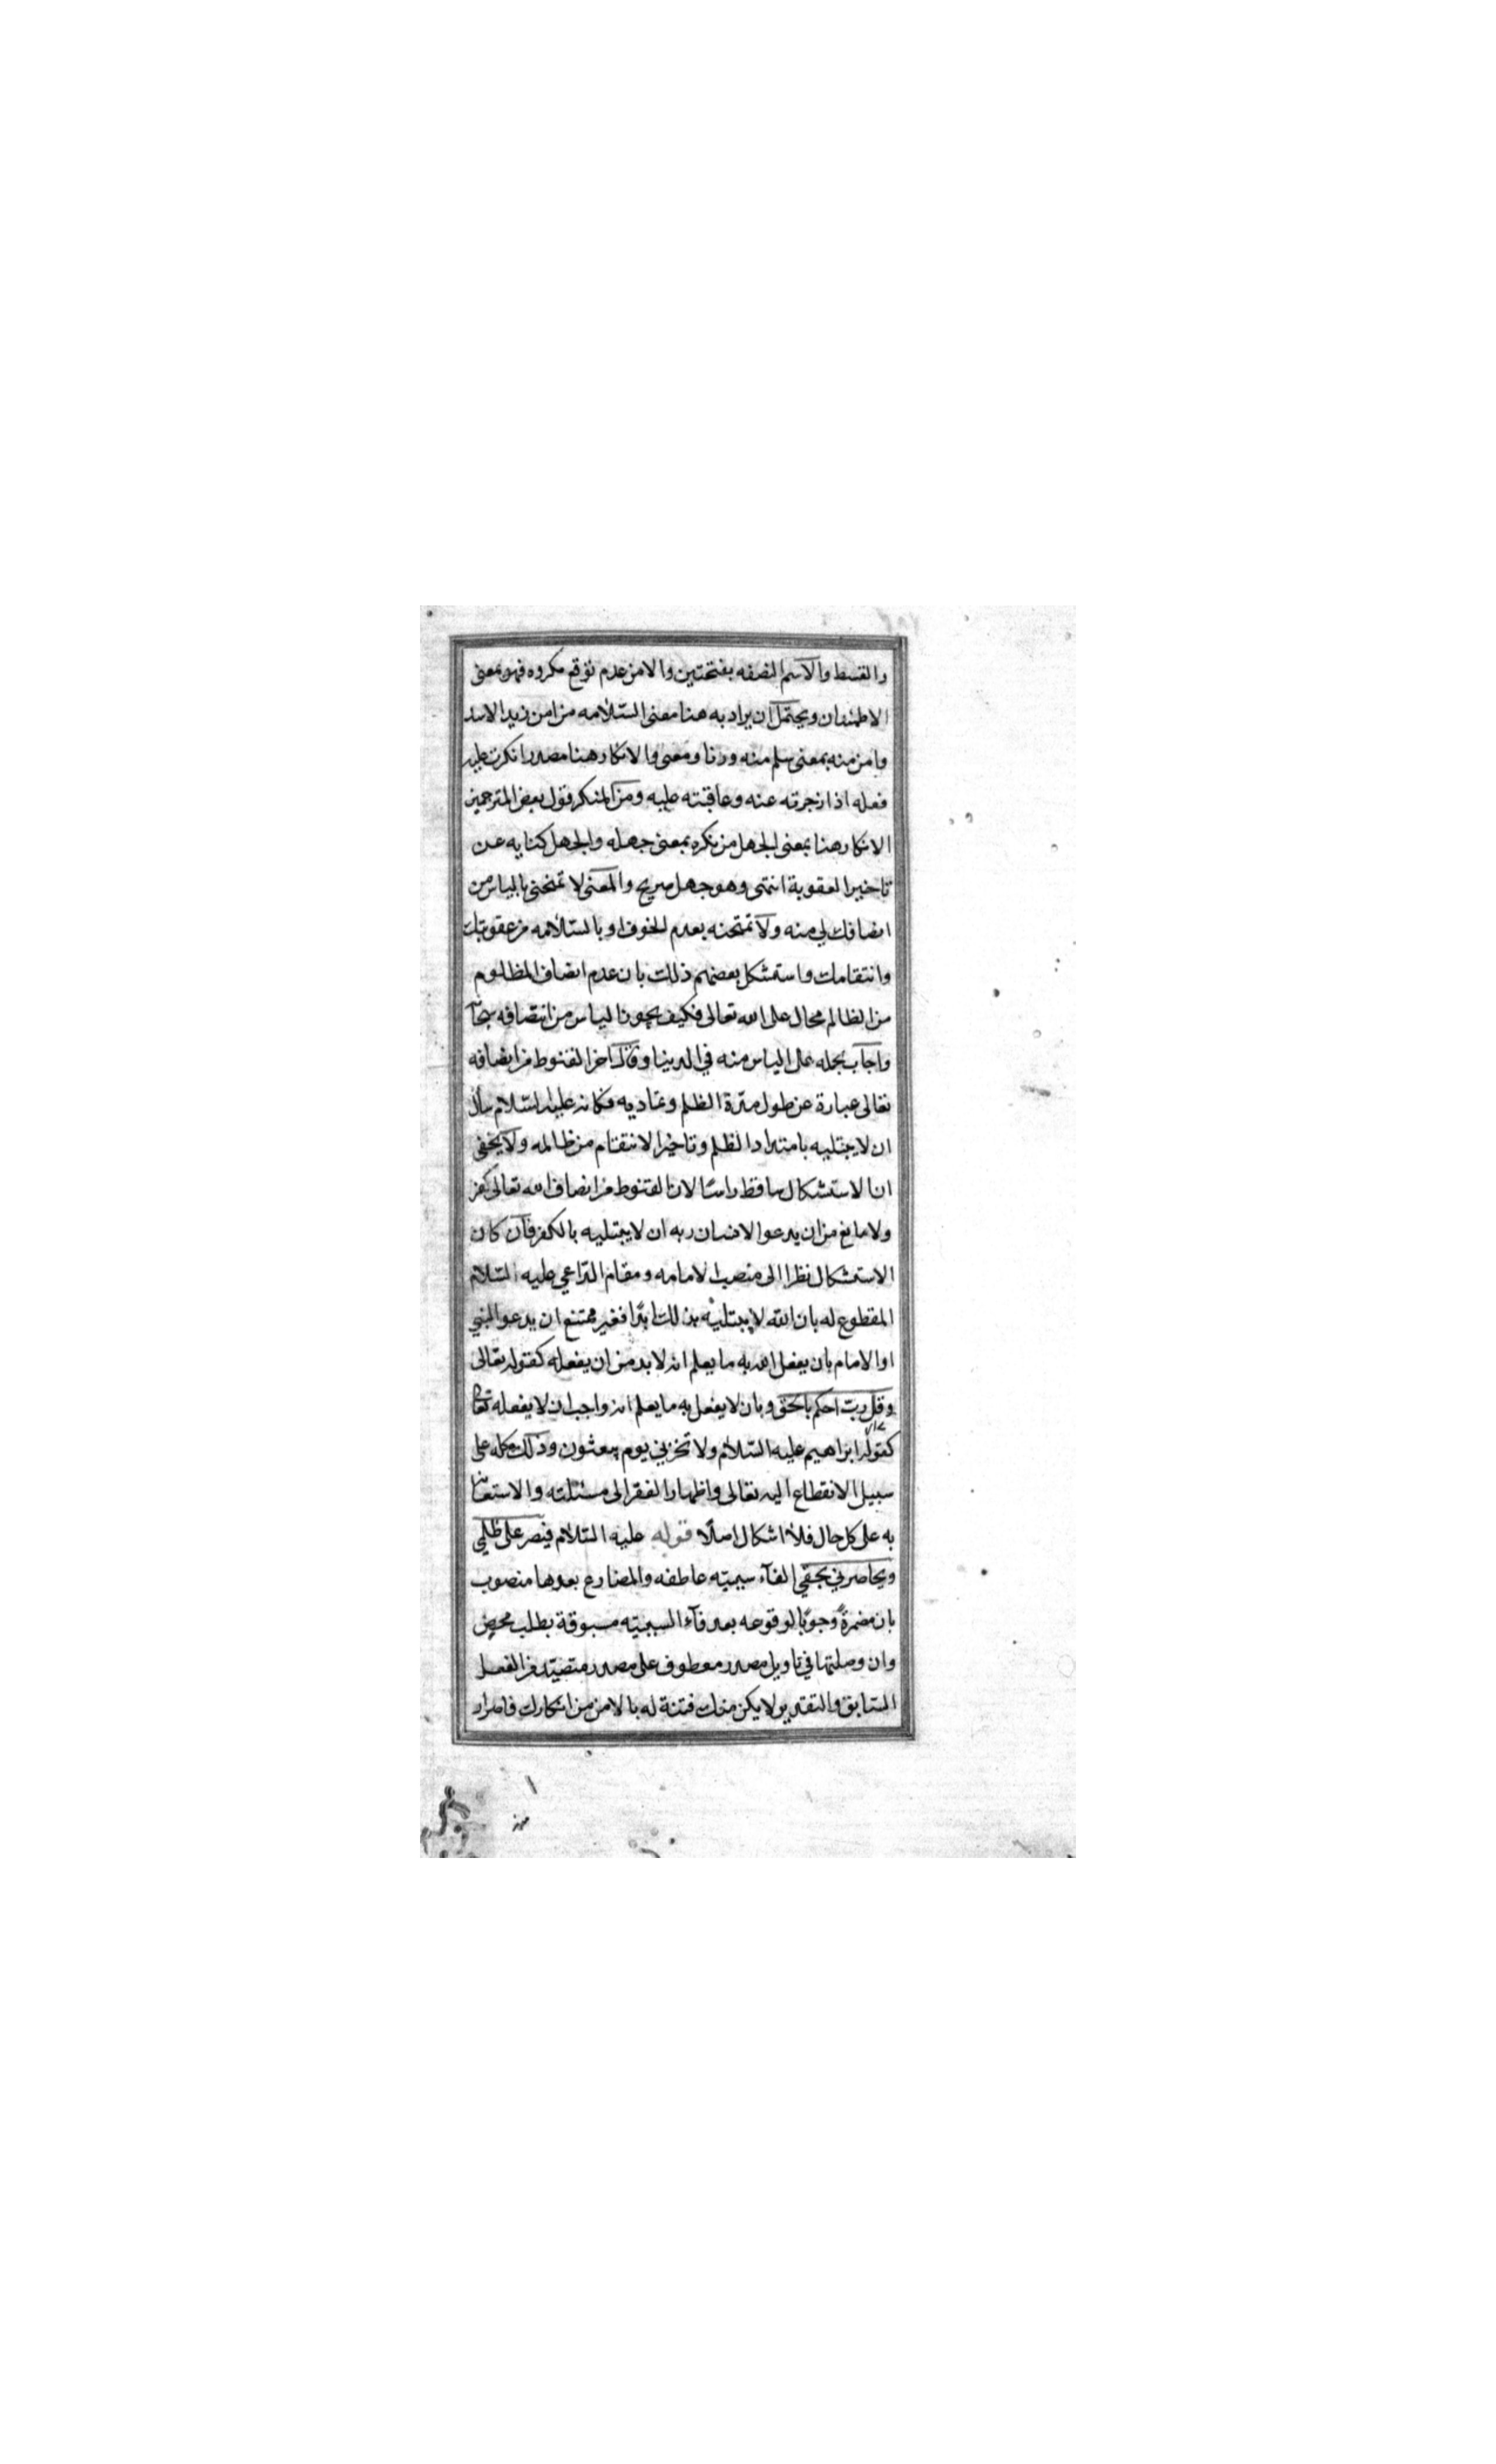 والقسط والاسم النصفه بفتحتين والامن عدم توقع مكروه فهو بمعنى
الاطمئنان ويحتمل ان يراد به هنا معنى السّلامه من امن زيد الاسد
وامن منه بمعنى سلم منه وزنا ومعنى والانكار هنا مصدر انكرت عليه
فعله اذا زجرته عنه وعاقبته عليه ومن المنكر قول بعض المترجمين
الانكار هنا بمعنى الجهل من نكره بمعنى جهله والجهل كنايه عن
تاخير العقوبة انتهى وهو جهل صريح والمعنى لا تمتحنى بالياس من
انصافك لي منه ولا تمتحنه بعدم الخوف او بالسّلامه من عقوبتك
وانتقامك واستشكل بعضهم ذلك بان عدم انصاف المظلوم
من الظالم محال على الله تعالى فكيف يجوز الياس من انتصافه سبحانه
واجاب بحمله على الياس منه في الدينا وقال اخر القنوط من انصافه
تعالى عبارة عن طول مدّة الظلم وتماديه فكانه عليه السّلام سأل
ان لا يبتليه بامتداد الظلم وتاخير الانتقام من ظالمه ولا يخفى
ان الاستشكال ساقط راسًا لان القنوط من انصاف الله تعالى كفر
ولا مانع من ان يدعو الانسان ربه ان لا يبتليه بالكفر فان كان
الاستشكال نظرا الى منصب الامامه ومقام الدّاعي عليه السّلام
المقطوع له بان الله لا يبتليه بذلك ابدًا فغير ممتنع ان يدعو النبي
او الامام بان يفعل الله به ما يعلم انه لا بد من ان يفعله كقوله تعالى
وقل ربّ احكم بالحق وبان لا يفعل به ما يعلم انه واجب ان لا يفعله تعالى
كقوله ابراهيم عليه السّلام ولا تخزني يوم يبعثون وذلك كله على
سبيل الانقطاع اليه تعالى واظهار الفقر الى مسئلته والاستعانه
به على كل حال فلا اشكال اصلًا قوله عليه السّلام فيصر على ظلمي
ويحاصرني بحقي الفآء سببيّه عاطفه والمضارع بعدها منصوب
بان مضمرةً وجوبًا لوقوعه بعد فآء السببيّه مسبوقة بطلب محض
وان وصلتها في تاويل مصدر معطوف على مصدر متصيّد من الفعل
السّابق والتقدير لا يكن منك فتنة له بالامن من انكارك فاصرار